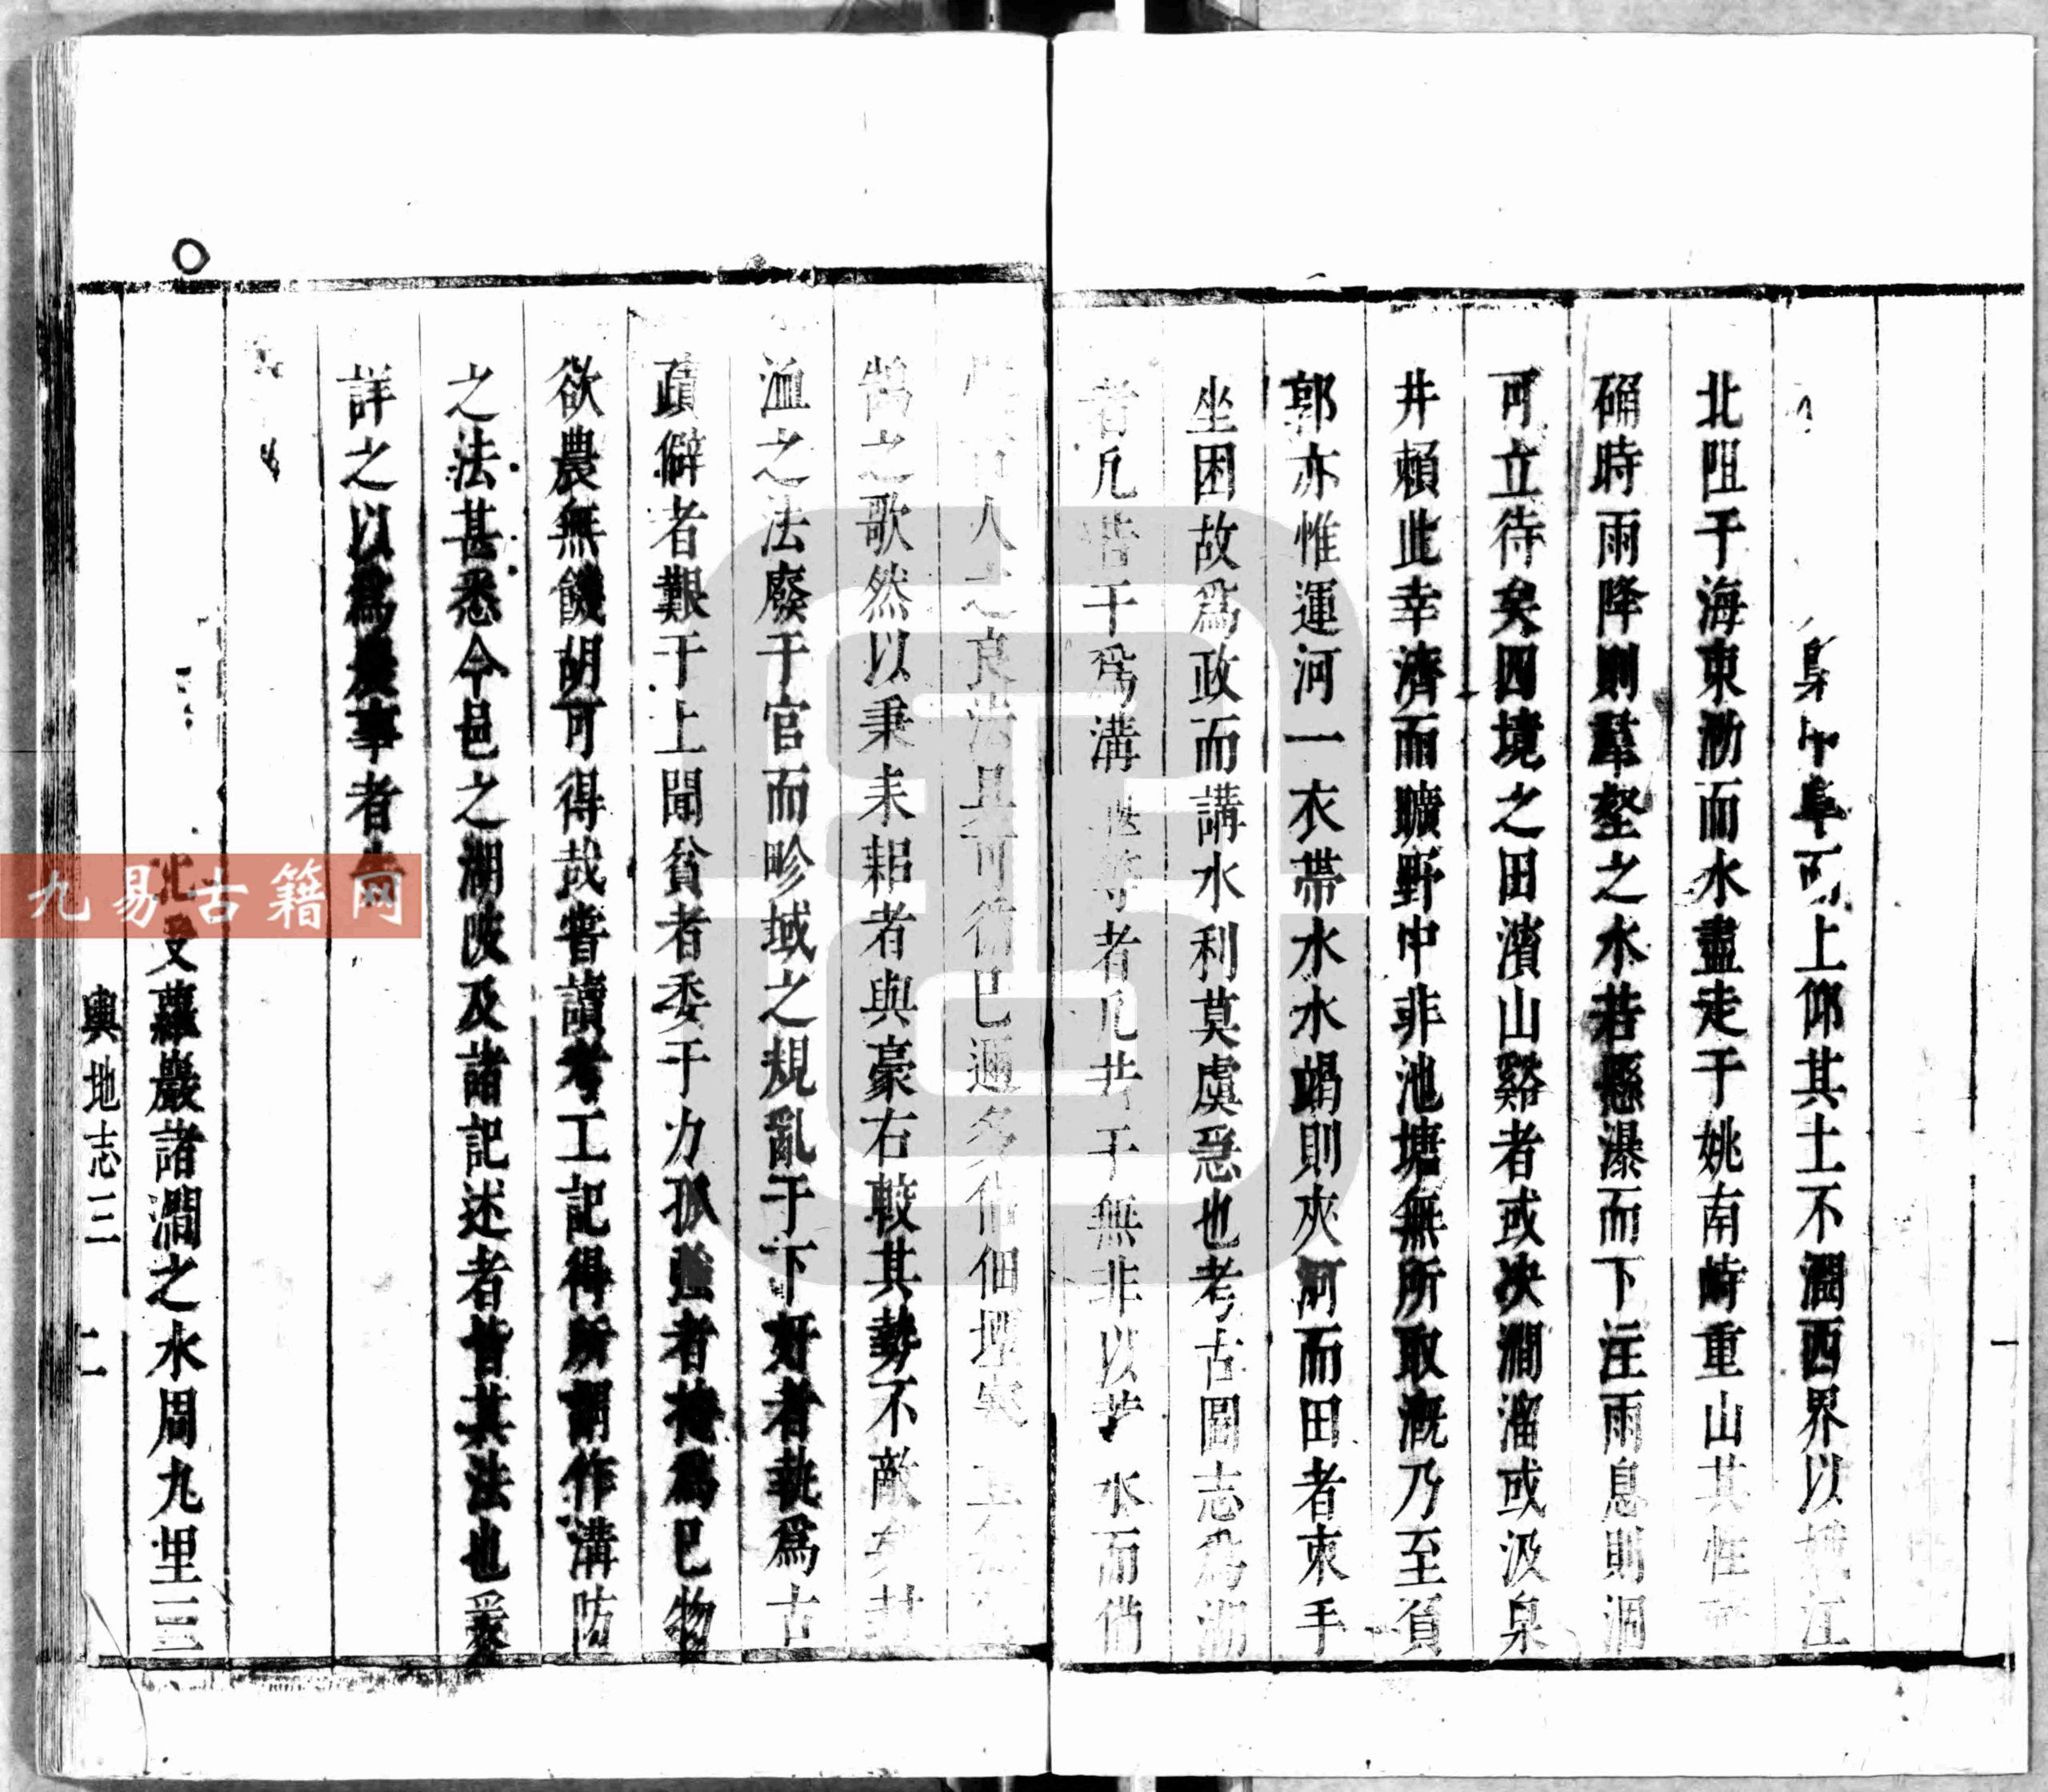 阜而上仰其土不潤西界以娥江
北阻于海東泐而水盡走于姚南峙重山其性
确時雨降則羣壑之水若懸瀑而下注雨息則涸
可立待矣四境之田濱山谿者或决澗溜或汲泉
井賴此幸濟而曠野中非池塘無所取溉乃至負
郭亦惟運河一衣帶水水竭則夾河而田者束手
坐困故爲政而講水利莫虞急也考古圖志爲湖
者凡若干爲溝者凡若干無非以水而
人之良法具可循已邇多佃堙
鵠之歌然以秉耒耜者與豪右較其勢不敵
洫之法廢于官而畛域之規亂于下好者執爲古
蹟僻者艱于上聞貧者委于力孤強者掩爲已物
欲農無饑胡可得哉嘗讀考工記得所謂作溝防
之法甚悉今邑之湖陂及諸記述者皆其法也爰
詳之以爲農事者告
北受蘿巖諸澗之水周九里三
輿地志三
二
一
九易古籍网